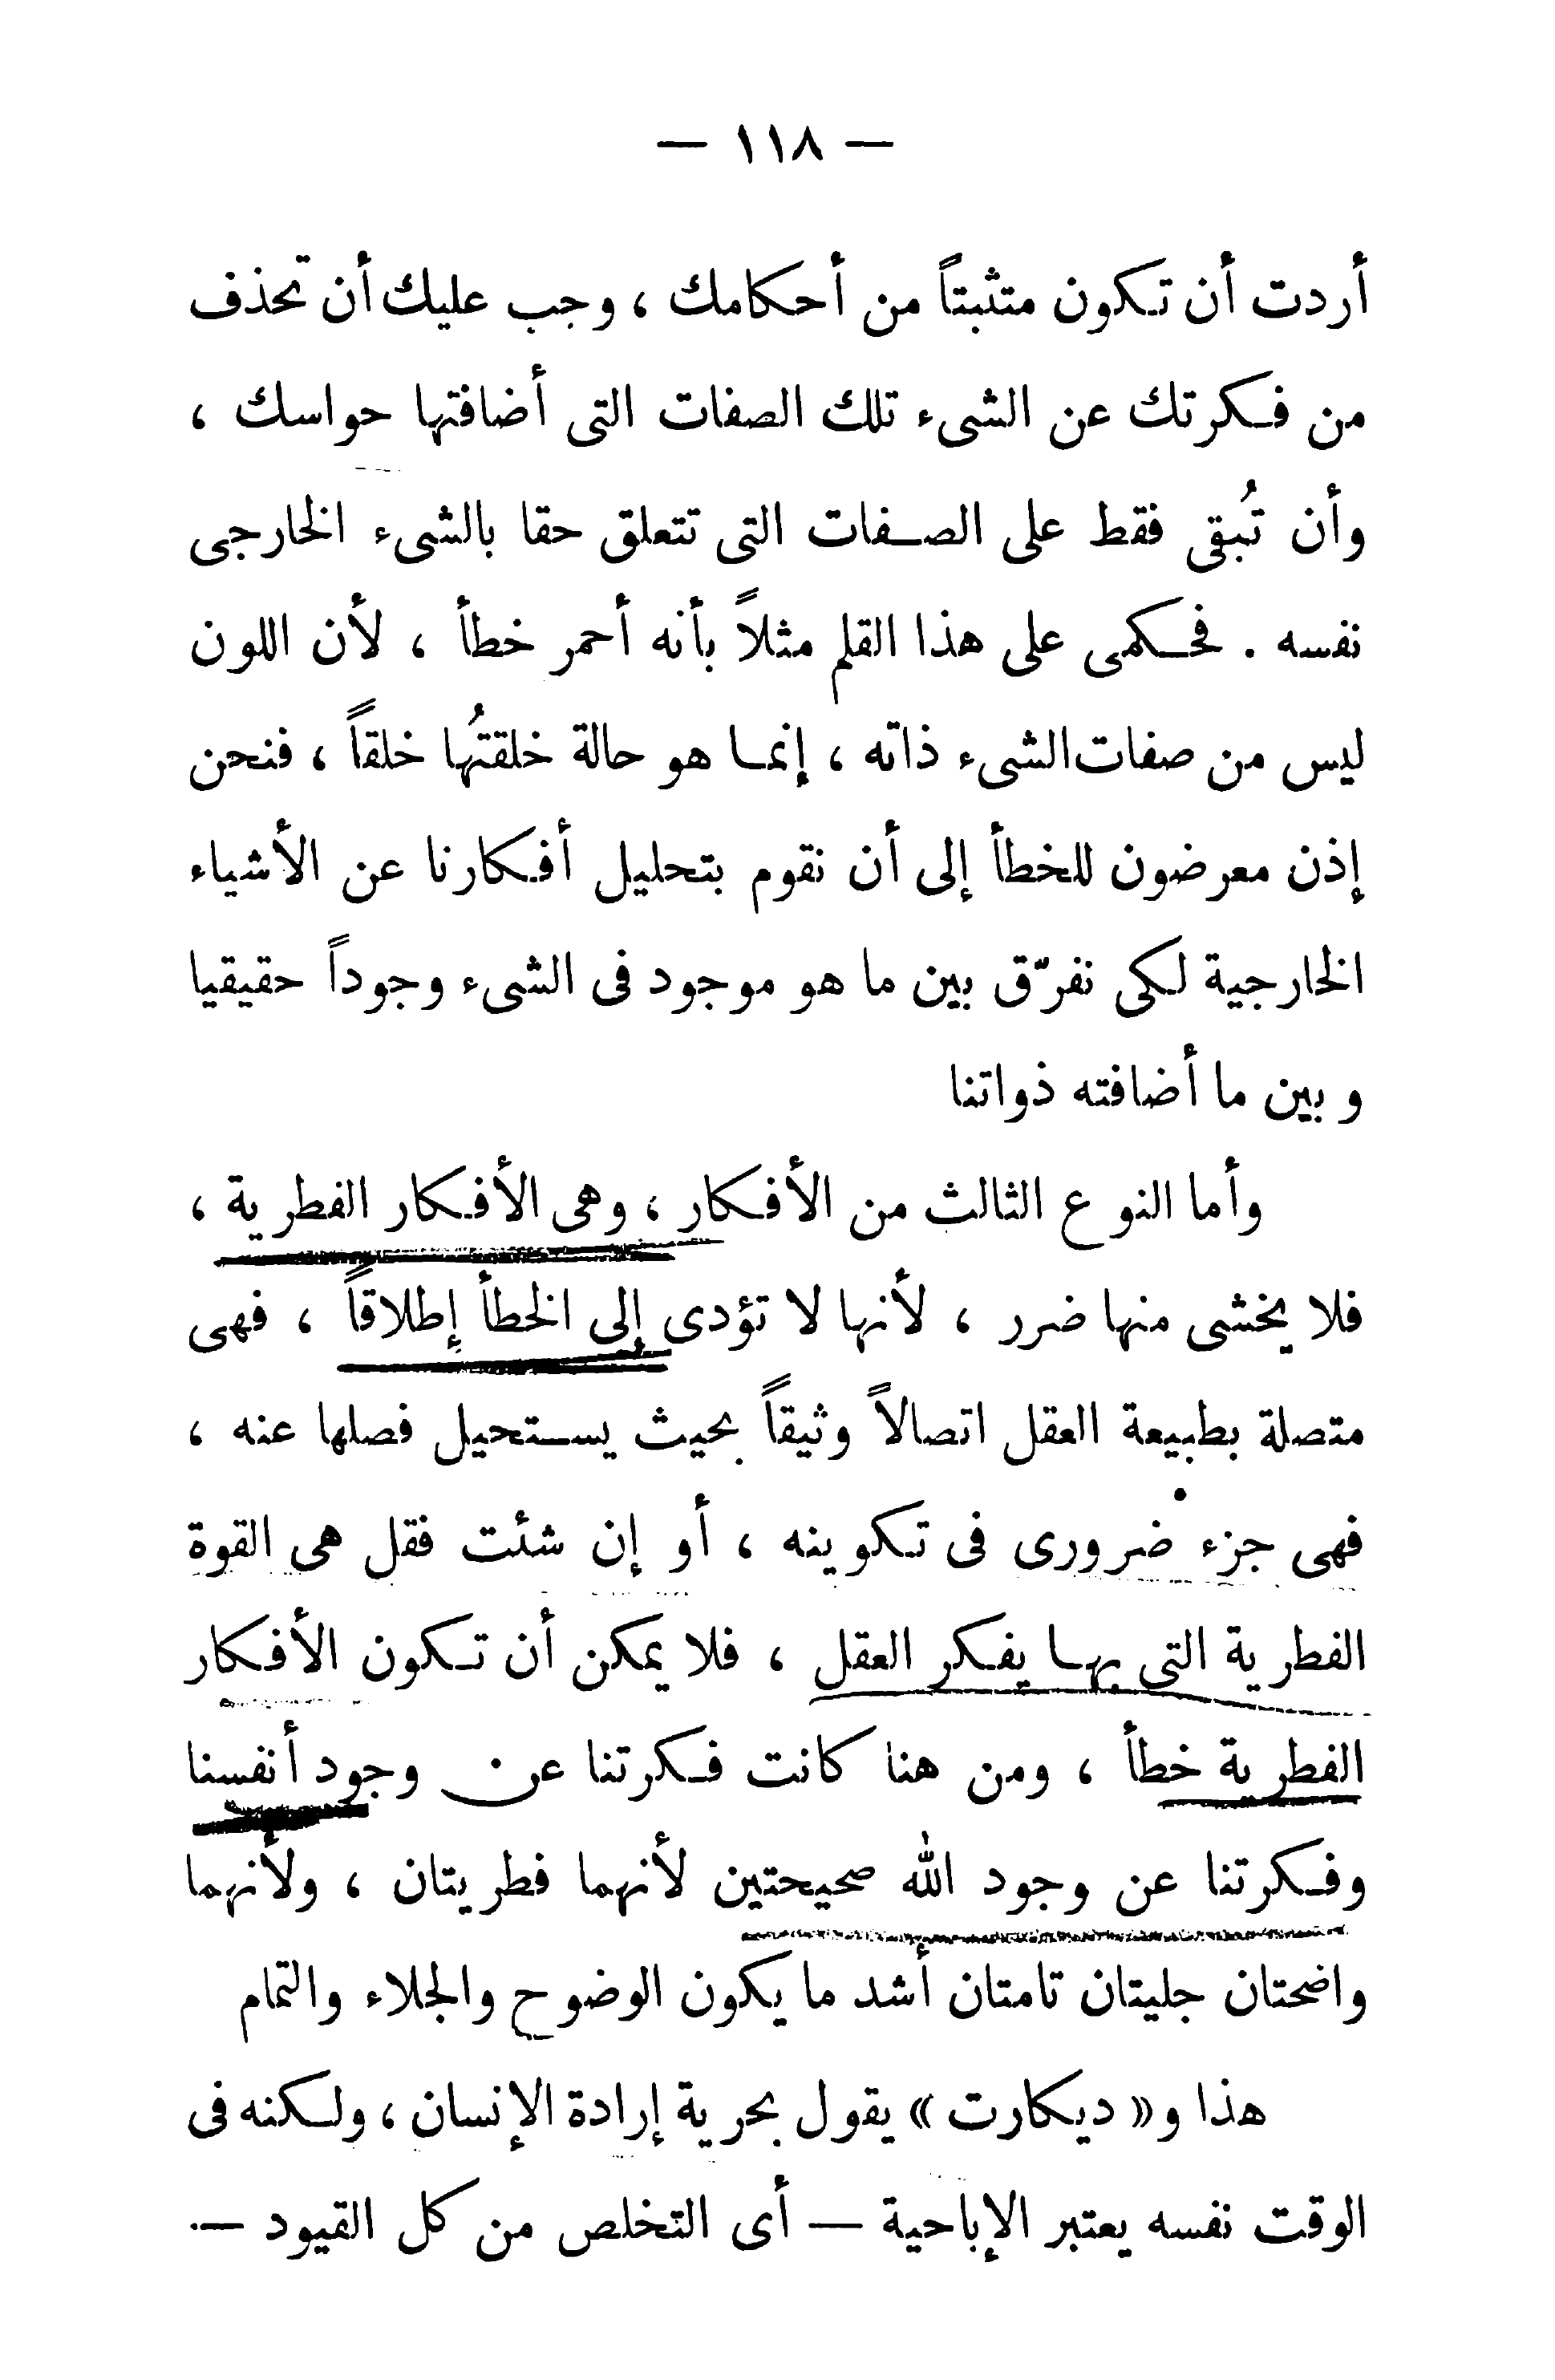 — ١١٨ —
أردت أن تكون متثبتاً من أحكامك ، وجب عليك أن تحذف
من فكرتك عن الشىء تلك الصفات التى أضافتها حواسك ،
وأن تُبقى فقط على الصفات التى تتعلق حقا بالشىء الخارجى
نفسه . فحكمى على هذا القلم مثلاً بأنه أحمر خطأ ، لأن اللون
ليس من صفات الشىء ذاته ، إنما هو حالة خلقتُها خلقاً ، فنحن
إذن معرضون للخطأ إلى أن نقوم بتحليل أفكارنا عن الأشياء
الخارجية لكى نفرّق بين ما هو موجود فى الشىء وجوداً حقيقيا
وبين ما أضافته ذواتنا
وأما النوع الثالث من الأفكار ، وهى الأفكار الفطرية ،
فلا يخشى منها ضرر ، لأنها لا تؤدى إلى الخطأ إطلاقاً ، فهى
متصلة بطبيعة العقل اتصالاً وثيقاً بحيث يستحيل فصلها عنه ،
فهى جزء ضرورى فى تكوينه ، أو إن شئت فقل هى القوة
الفطرية التى بها يفكر العقل ، فلا يمكن أن تكون الأفكار
الفطرية خطأ ، ومن هنا كانت فكرتنا عن وجود أنفسنا
وفكرتنا عن وجود الله صحيحتين لأنهما فطريتان ، ولأنهما
واضحتان جليتان تامتان أشد ما يكون الوضوح والجلاء والتمام
هذا و« ديكارت » يقول بحرية إرادة الإنسان ، ولكنه فى
الوقت نفسه يعتبر الإباحية — أى التخلص من كل القيود —